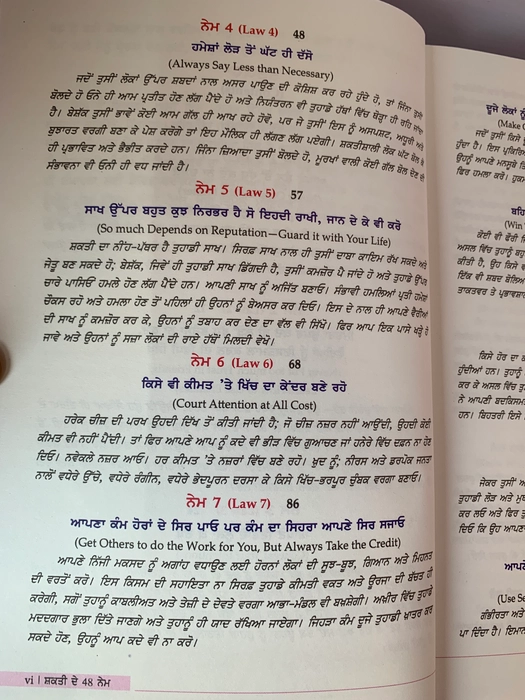 ਨੇਮ 4 (Law 4) 48
ਹਮੇਸ਼ਾਂ ਲੋੜ ਤੋਂ ਘੱਟ ਹੀ ਦੱਸੋ
(Always Say Less than Necessary)
ਜਦੋਂ ਤੁਸੀਂ ਲੋਕਾਂ ਉੱਪਰ ਸ਼ਬਦਾਂ ਨਾਲ ਅਸਰ ਪਾਉਣ ਦੀ ਕੋਸ਼ਿਸ਼ ਕਰ ਰਹੇ ਹੁੰਦੇ ਹੋ, ਤਾਂ ਜਿੰਨਾ ਤੁਸੀਂ
ਬੋਲਦੇ ਹੋ ਓਨੇ ਹੀ ਆਮ ਪ੍ਰਤੀਤ ਹੋਣ ਲੱਗ ਪੈਂਦੇ ਹੋ ਅਤੇ ਨਿਯੰਤਰਨ ਵੀ ਤੁਹਾਡੇ ਹੱਥਾਂ ਵਿੱਚ ਥੋੜ੍ਹਾ ਹੀ ਰਹਿ ਜਾਂਦਾ
ਹੈ। ਬੇਸ਼ੱਕ ਤੁਸੀਂ ਭਾਵੇਂ ਕੋਈ ਆਮ ਗੱਲ ਹੀ ਆਖ ਰਹੇ ਹੋਵੋ, ਪਰ ਜੇ ਤੁਸੀਂ ਇਸ ਨੂੰ ਅਸਪਸ਼ਟ, ਅਧੂਰੀ ਅਤੇ
ਬੁਝਾਰਤ ਵਰਗੀ ਬਣਾ ਕੇ ਪੇਸ਼ ਕਰੋਗੇ ਤਾਂ ਇਹ ਮੌਲਿਕ ਹੀ ਲੱਗਣ ਲੱਗ ਪਏਗੀ। ਸ਼ਕਤੀਸ਼ਾਲੀ ਲੋਕ ਘੱਟ ਬੋਲ ਕੇ
ਹੀ ਪ੍ਰਭਾਵਿਤ ਅਤੇ ਭੈਭੀਤ ਕਰਦੇ ਹਨ। ਜਿੰਨਾ ਜ਼ਿਆਦਾ ਤੁਸੀਂ ਬੋਲਦੇ ਹੋ, ਮੂਰਖਾਂ ਵਾਲੀ ਕੋਈ ਗੱਲ ਬੋਲ ਦੇਣ ਦੀ
ਸੰਭਾਵਨਾ ਵੀ ਓਨੀ ਹੀ ਵਧ ਜਾਂਦੀ ਹੈ।
ਨੇਮ 5 (Law 5) 57
ਸਾਖ ਉੱਪਰ ਬਹੁਤ ਕੁਝ ਨਿਰਭਰ ਹੈ ਸੋ ਇਹਦੀ ਰਾਖੀ, ਜਾਨ ਦੇ ਕੇ ਵੀ ਕਰੋ
(So much Depends on Reputation—Guard it with Your Life)
ਸ਼ਕਤੀ ਦਾ ਨੀਂਹ-ਪੱਥਰ ਹੈ ਤੁਹਾਡੀ ਸਾਖ। ਸਿਰਫ਼ ਸਾਖ ਨਾਲ ਹੀ ਤੁਸੀਂ ਦਾਬਾ ਕਾਇਮ ਰੱਖ ਸਕਦੇ ਅਤੇ
ਜੇਤੂ ਬਣ ਸਕਦੇ ਹੋ; ਬੇਸ਼ੱਕ, ਜਿਵੇਂ ਹੀ ਤੁਹਾਡੀ ਸਾਖ ਡਿੱਗਦੀ ਹੈ, ਤੁਸੀਂ ਕਮਜ਼ੋਰ ਪੈ ਜਾਂਦੇ ਹੋ ਅਤੇ ਤੁਹਾਡੇ ਉੱਪਰ
ਚਾਰੇ ਪਾਸਿਓਂ ਹਮਲੇ ਹੋਣ ਲੱਗ ਪੈਂਦੇ ਹਨ। ਆਪਣੀ ਸਾਖ ਨੂੰ ਅਜਿੱਤ ਬਣਾਓ। ਸੰਭਾਵੀ ਹਮਲਿਆਂ ਪ੍ਰਤੀ ਹਮੇਸ਼ਾ
ਚੌਕਸ ਰਹੋ ਅਤੇ ਹਮਲਾ ਹੋਣ ਤੋਂ ਪਹਿਲਾਂ ਹੀ ਉਹਨਾਂ ਨੂੰ ਬੇਅਸਰ ਕਰ ਦਿਓ। ਇਸ ਦੇ ਨਾਲ ਹੀ ਆਪਣੇ ਵੈਰੀਆਂ
ਦੀ ਸਾਖ ਨੂੰ ਕਮਜ਼ੋਰ ਕਰ ਕੇ, ਉਹਨਾਂ ਨੂੰ ਤਬਾਹ ਕਰ ਦੇਣ ਦਾ ਵੱਲ ਵੀ ਸਿੱਖੋ। ਫਿਰ ਆਪ ਇਕ ਪਾਸੇ ਖੜ੍ਹੇ ਹੋ
ਜਾਵੋ ਅਤੇ ਉਹਨਾਂ ਨੂੰ ਸਜ਼ਾ ਲੋਕਾਂ ਦੀ ਰਾਏ ਹੱਥੋਂ ਮਿਲਦੀ ਵੇਖੋ।
ਨੇਮ 6 (Law 6) 68
ਕਿਸੇ ਵੀ ਕੀਮਤ 'ਤੇ ਖਿੱਚ ਦਾ ਕੇਂਦਰ ਬਣੇ ਰਹੋ
(Court Attention at All Cost)
ਹਰੇਕ ਚੀਜ਼ ਦੀ ਪਰਖ ਉਹਦੀ ਦਿੱਖ ਤੋਂ ਕੀਤੀ ਜਾਂਦੀ ਹੈ; ਜੋ ਚੀਜ਼ ਨਜ਼ਰ ਨਹੀਂ ਆਉਂਦੀ, ਉਹਦੀ ਕੋਈ
ਕੀਮਤ ਵੀ ਨਹੀਂ ਪੈਂਦੀ। ਤਾਂ ਫਿਰ ਆਪਣੇ ਆਪ ਨੂੰ ਕਦੇ ਵੀ ਭੀੜ ਵਿੱਚ ਗੁਆਚਣ ਜਾਂ ਹਨੇਰੇ ਵਿੱਚ ਦਫ਼ਨ ਨਾ ਹੋਣ
ਦਿਓ। ਨਵੇਕਲੇ ਨਜ਼ਰ ਆਓ। ਹਰ ਕੀਮਤ 'ਤੇ ਨਜ਼ਰਾਂ ਵਿੱਚ ਬਣੇ ਰਹੋ। ਖ਼ੁਦ ਨੂੰ; ਨੀਰਸ ਅਤੇ ਡਰਪੋਕ ਜਨਤਾ
ਨਾਲੋਂ ਵਧੇਰੇ ਉੱਚੇ, ਵਧੇਰੇ ਰੰਗੀਨ, ਵਧੇਰੇ ਭੇਦਪੂਰਨ ਦਰਸਾ ਕੇ ਕਿਸੇ ਖਿੱਚ-ਭਰਪੂਰ ਚੁੰਬਕ ਵਰਗਾ ਬਣਾਓ।
ਨੇਮ 7 (Law 7) 86
ਆਪਣਾ ਕੰਮ ਹੋਰਾਂ ਦੇ ਸਿਰ ਪਾਓ ਪਰ ਕੰਮ ਦਾ ਸਿਹਰਾ ਆਪਣੇ ਸਿਰ ਸਜਾਓ
(Get Others to do the Work for You, But Always Take the Credit)
ਆਪਣੇ ਨਿੱਜੀ ਮਕਸਦ ਨੂੰ ਅਗਾਂਹ ਵਧਾਉਣ ਲਈ ਹੋਰਨਾਂ ਲੋਕਾਂ ਦੀ ਸੂਝ-ਬੂਝ, ਗਿਆਨ ਅਤੇ ਮਿਹਨਤ
ਦੀ ਵਰਤੋਂ ਕਰੋ। ਇਸ ਕਿਸਮ ਦੀ ਸਹਾਇਤਾ ਨਾ ਸਿਰਫ਼ ਤੁਹਾਡੇ ਕੀਮਤੀ ਵਕਤ ਅਤੇ ਊਰਜਾ ਦੀ ਬੱਚਤ ਹੀ
ਕਰੇਗੀ, ਸਗੋਂ ਤੁਹਾਨੂੰ ਕਾਬਲੀਅਤ ਅਤੇ ਤੇਜ਼ੀ ਦੇ ਦੇਵਤੇ ਵਰਗਾ ਆਭਾ-ਮੰਡਲ ਵੀ ਬਖਸ਼ੇਗੀ। ਅਖ਼ੀਰ ਵਿੱਚ ਤੁਹਾਡੇ
ਮਦਦਗਾਰ ਭੁਲਾ ਦਿੱਤੇ ਜਾਣਗੇ ਅਤੇ ਤੁਹਾਨੂੰ ਹੀ ਯਾਦ ਰੱਖਿਆ ਜਾਏਗਾ। ਜਿਹੜਾ ਕੰਮ ਦੂਜੇ ਤੁਹਾਡੀ ਖ਼ਾਤਰ ਕਰ
ਸਕਦੇ ਹੋਣ, ਉਹਨੂੰ ਆਪ ਕਦੇ ਵੀ ਨਾ ਕਰੋ।
vi | ਸ਼ਕਤੀ ਦੇ 48 ਨੇਮ
ਦੂਜੇ ਲੋਕਾਂ ਨੂੰ
(Make
ਜਦੋਂ ਤੁਸੀਂ ਕਿਸੇ
ਹੁੰਦਾ ਹੈ। ਇਸ ਪ੍ਰਕਿਰਿਆ
ਉਹਨੂੰ ਆਪਣੇ ਮਨਸੂਬੇ
ਫਿਰ ਹਮਲਾ ਕਰੋ।
(Win
ਕੋਈ ਵੀ ਫੌਰੀ
ਅਸਲ ਵਿੱਚ ਤੁਹਾਨੂੰ
ਕੀਤੀ ਹੈ, ਉਹ ਕਿਸੇ
ਇੱਕ ਵੀ ਸ਼ਬਦ ਬੋਲਿਆਂ
ਤਾਕਤਵਰ ਤੇ ਪ੍ਰਭਾਵਸ਼ਾਲੀ
ਕਿਸੇ ਹੋਰ ਦਾ
ਹੁੰਦੀਆਂ ਹਨ। ਤੁਹਾਨੂੰ
ਕਰ ਕੇ ਅਸਲ ਵਿੱਚ
ਨੇ ਆਪਣੀ ਬਦਕਿਸਮਤੀ
ਹਨ। ਬਿਹਤਰੀ ਇਸੇ
ਜੇਕਰ ਤੁਸੀਂ
ਤੁਹਾਡੀ ਲੋੜ ਅਤੇ
ਕਰ ਲਓ ਅਤੇ ਫਿਰ
ਦਿਓ ਕਿ ਉਹ ਆਪਣਾ
ਆਪਣੇ
(Use Se
ਗੰਭੀਰਤਾ ਅਤੇ
ਪਾ ਦਿੰਦਾ ਹੈ।